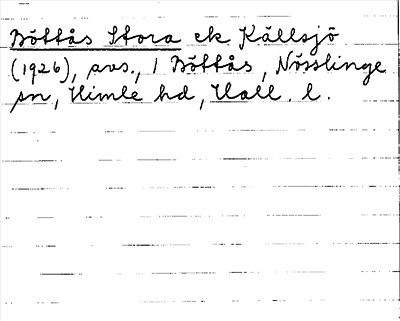 Böttås Stora ek Källsjö
(1926), avs., 1 Böttås, Nösslinge
sn, Himle hd, Hall. l.